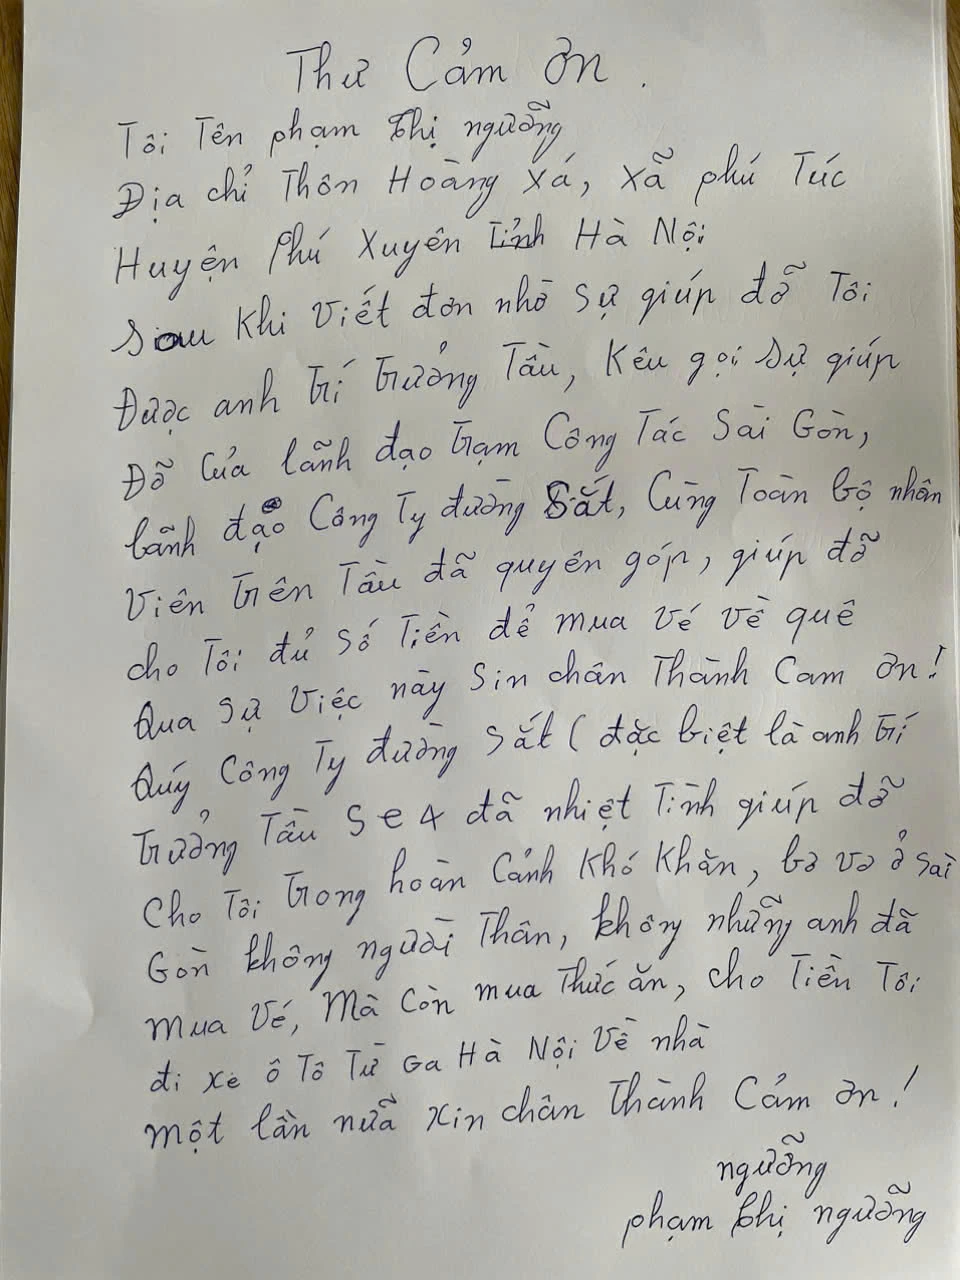 Thư Cảm ơn.
Tôi Tên phạm thị ngưỡng
Địa chỉ Thôn Hoàng Xá, xã phú Túc
Huyện Phú Xuyên Tỉnh Hà Nội
Sau khi viết đơn nhờ sự giúp đỡ Tôi
Được anh Trí Trưởng Tàu, Kêu gọi sự giúp
Đỡ của lãnh đạo trạm Công Tác Sài Gòn,
lãnh đạo Công Ty đường Sắt, Cùng Toàn bộ nhân
Viên trên Tàu đã quyên góp, giúp đỡ
cho Tôi đủ số Tiền để mua vé về quê
Qua sự việc này Sin chân Thành Cam ơn!
Quý Công Ty đường sắt ( đặc biệt là anh trí
trưởng Tàu Se4 đã nhiệt Tình giúp đỡ
Cho Tôi trong hoàn Cảnh Khó Khăn, bơ vơ ở sài
Gòn không người Thân, không những anh đã
mua vé, Mà Còn mua Thức ăn, cho Tiền Tôi
đi xe ô Tô Từ Ga Hà Nội về nhà
một lần nữa xin chân Thành Cảm ơn!
ngưỡng
phạm thị ngưỡng